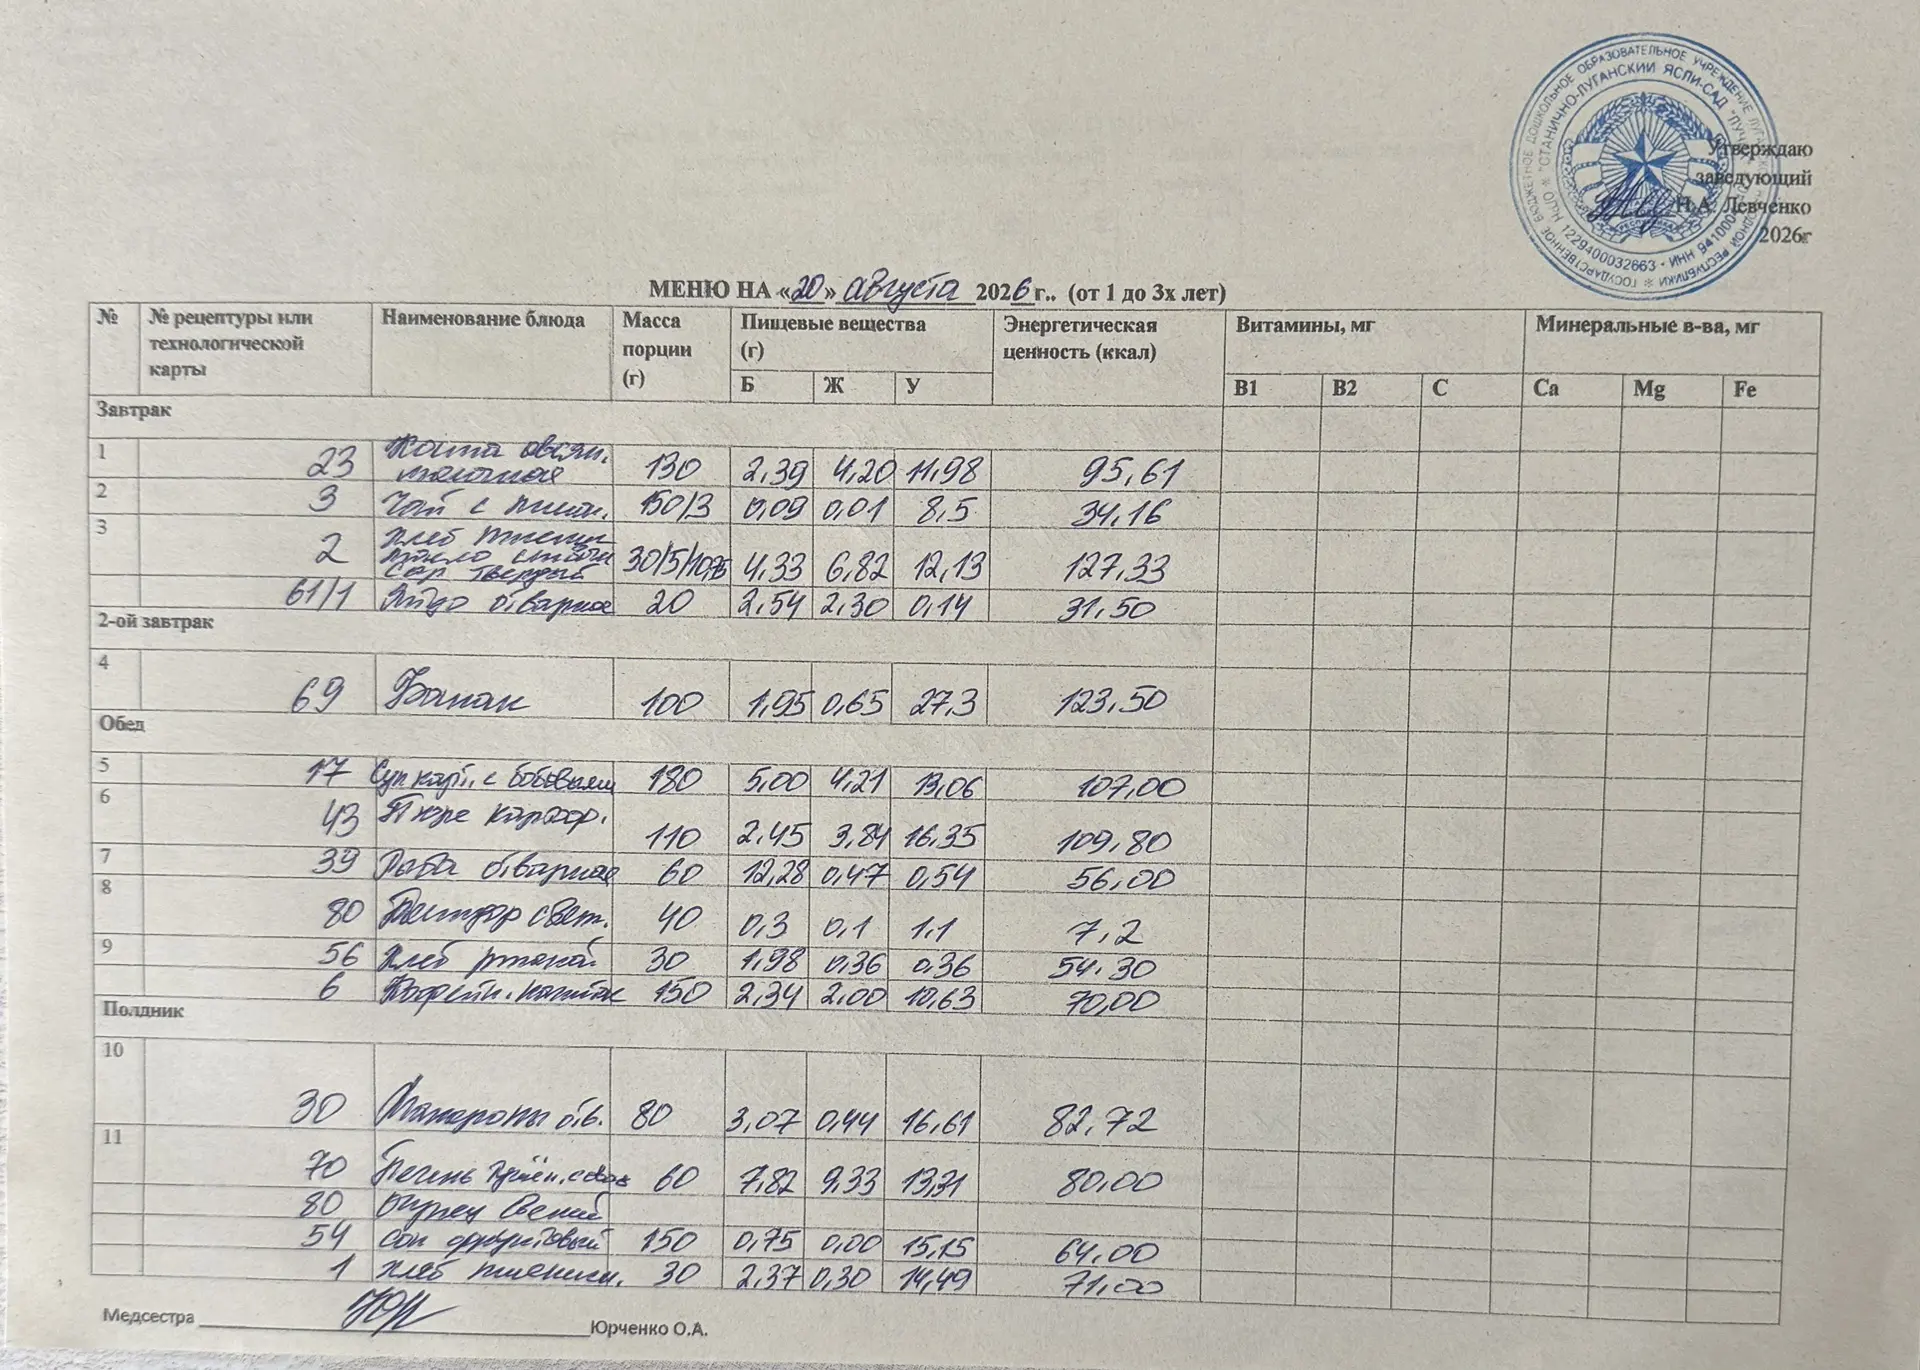 ГОСУДАРСТВЕННОЕ БЮДЖЕТНОЕ ДОШКОЛЬНОЕ ОБРАЗОВАТЕЛЬНОЕ УЧРЕЖДЕНИЕ
РЕСПУБЛИКИ
"СТАНИЧНО-ЛУГАНСКИЙ ЯСЛИ-САД
1229400032663 * ИНН
Утверждаю
заведующий
Н.А. Левченко
2026г
МЕНЮ НА «20» августа 2026 г.. (от 1 до 3х лет)
№ № рецептуры или технологической карты Наименование блюда Масса порции (г) Пищевые вещества (г) Энергетическая ценность (ккал) Витамины, мг Минеральные в-ва, мг
Б Ж У В1 В2 С Са Mg Fe
Завтрак
1 23 Каша овсян. молочная 130 2,39 4,20 11,98 95,61
2 3 Чай с 150/3 0,09 0,01 8,5 34,16
3 2 Хлеб пшенич масло сливочн Сыр твердый 30/5/10,75 4,33 6,82 12,13 127,33
61/1 Яйцо отварное 20 2,54 2,30 0,14 31,50
2-ой завтрак
4 69 Банан 100 1,95 0,65 27,3 123,50
Обед
5 17 Суп карт. с бобовыми 180 5,00 4,21 13,06 107,00
6 43 Пюре картоф. 110 2,45 3,84 16,35 109,80
7 39 Рыба отварная 60 12,28 0,47 0,54 56,00
8 80 Помидор свеж. 40 0,3 0,1 1,1 7,2
9 56 Хлеб ржаной 30 1,98 0,36 0,36 54,30
6 Кофейн. напиток 150 2,34 2,00 10,63 70,00
Полдник
10 30 Макароны отв. 80 3,07 0,44 16,61 82,72
11 70 Печень 60 7,82 9,33 13,31 80,00
80 Огурец свежий
54 Сок фруктовый 150 0,75 0,00 15,15 64,00
1 Хлеб пшеничн. 30 2,37 0,30 14,49 71,00
Медсестра Юрченко О.А.